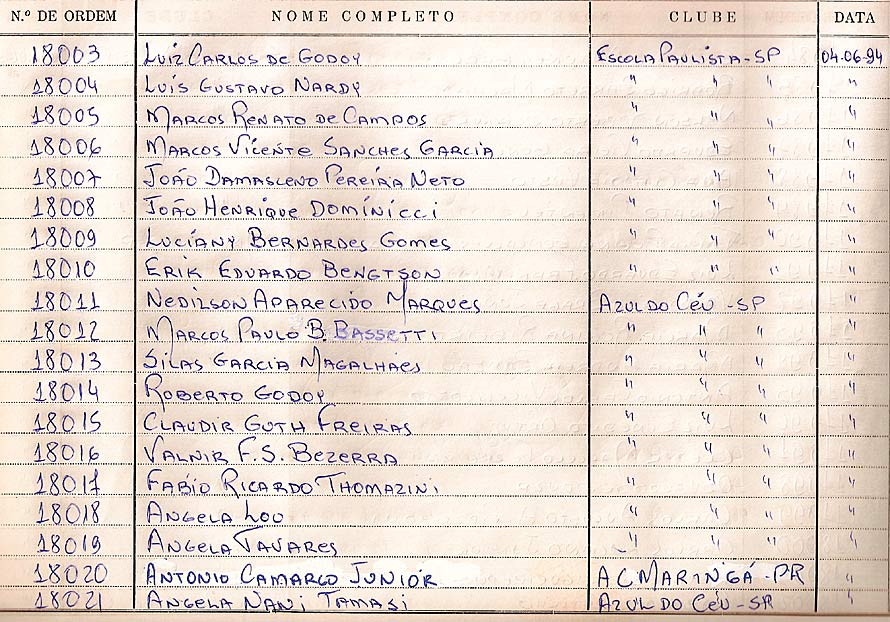 N.º DE ORDEM NOME COMPLETO CLUBE DATA
18003 Luiz Carlos de Godoy Escola Paulista-SP 04.06.94
18004 Luís Gustavo Nardy " " " "
18005 Marcos Renato de Campos " " " "
18006 Marcos Vicente Sanches Garcia " " " "
18007 João Damasceno Pereira Neto " " " "
18008 João Henrique Domínicci " " " "
18009 Luciany Bernardes Gomes " " " "
18010 Erik Eduardo Bengtson " " " "
18011 Nedilson Aparecido Marques Azul do Céu -SP "
18012 Marcos Paulo B. Bassetti " " " "
18013 Silas Garcia Magalhães " " " "
18014 Roberto Godoy " " " "
18015 Claudir Guth Freiras " " " "
18016 Valnir F.S. Bezerra " " " "
18017 Fabio Ricardo Thomazini " " " "
18018 Angela Lou " " " "
18019 Angela Tavares " " " "
18020 Antonio Camargo Junior AC Maringá-PR "
18021 Angela Nani Tamasi Azul do Céu-SP "